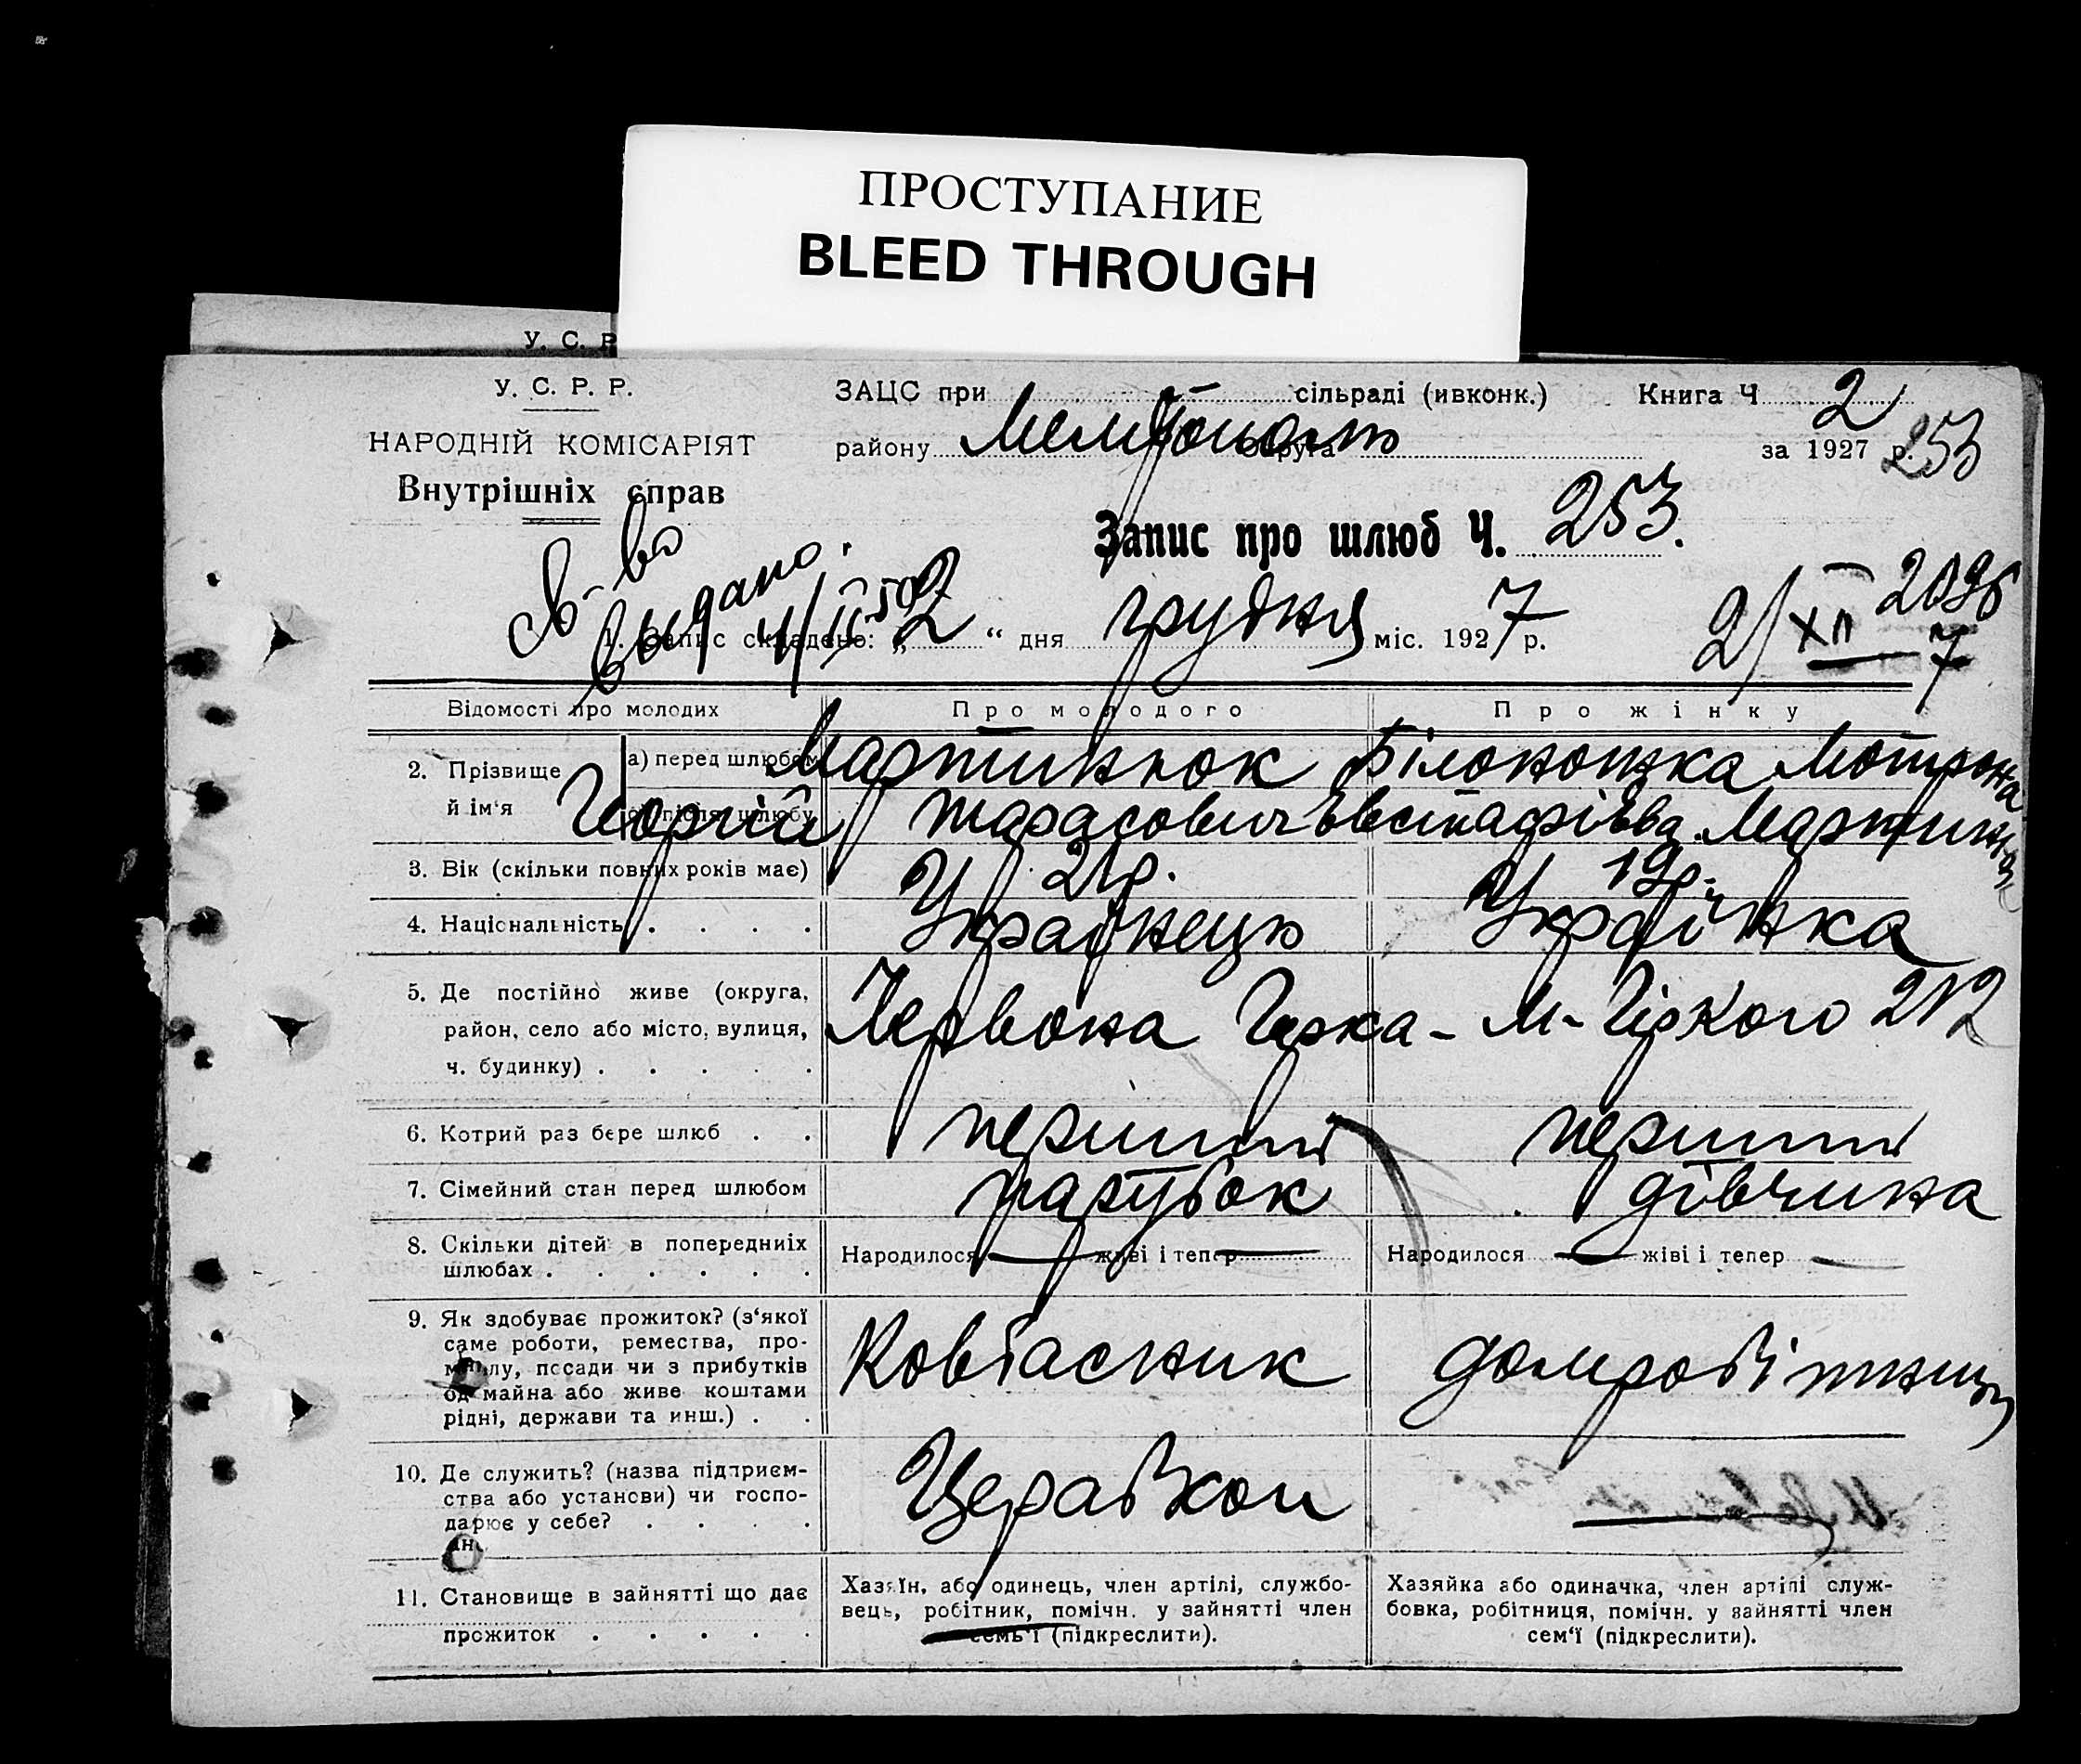 ПРОСТУПАНИЕ
BLEED THROUGH
У. С. Р
У. С. Р. Р.
НАРОДНІЙ КОМІСАРІЯТ
Внутрішніх справ
ЗАЦС при сільраді (ивконк.) Книга Ч 2
району округа за 1927 р. 253
Запис про шлюб Ч. 253.
С-во
выдано.
4/II 50
1. Запис складено: „2“ дня грудня міс. 1927 р.
2/XII 7
Відомості про молодих Про молодого Про жінку
2. Прізвище й ім‘я
а) перед шлюбом Мартинюк Білоножка Мотрона
після шлюбу Георгій Тарасович Мартинюк
3. Вік (скільки повних років має) 21 р. 19 р.
4. Національність Українець Українка
5. Де постійно живе (округа,
район, село або місто, вулиця,
ч. будинку)
Червона Гірка - М-Гіркого 212
6. Котрий раз бере шлюб перший перший
7. Сімейний стан перед шлюбом парубок дівчина
8. Скільки дітей в попередниіх
шлюбах
Народилося — живі і тепер —
Народилося — жіві і тепер —
9. Як здобуває прожиток? (з‘якої
саме роботи, ремества, про-
мислу, посади чи з прибутків
од майна або живе коштами
рідні, держави та инш.)
Ковбасник
домробітниця
10. Де служить? (назва підприєм-
ства або установи) чи госпо-
дарює у себе?
Церабкоп
11. Становище в зайнятті що дає
прожиток
Хазяїн, або одинець, член артілі, службо-
вець, робітник, помічн. у зайнятті член
семь‘ї (підкреслити).
Хазяйка або одиначка, член артілі служ-
бовка, робітниця, помічн. у зайнятті член
сем‘ї (підкреслити).